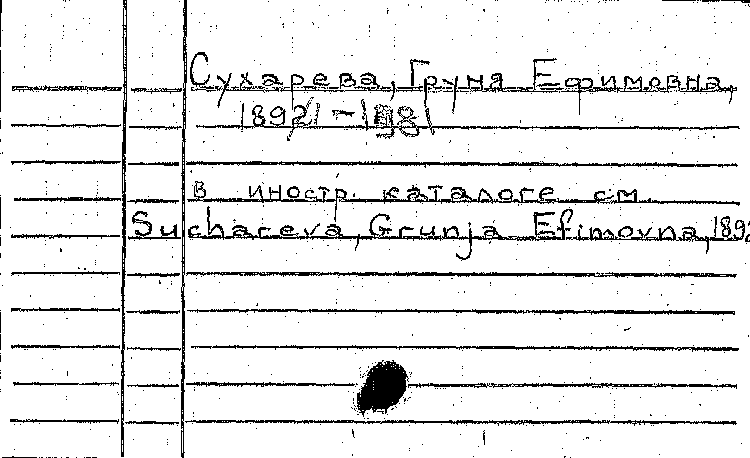 Сухарева, Груня Ефимовна,
1891 - 1981
в иностр. каталоге см.
Suchareva, Grunja Efimovna, 189